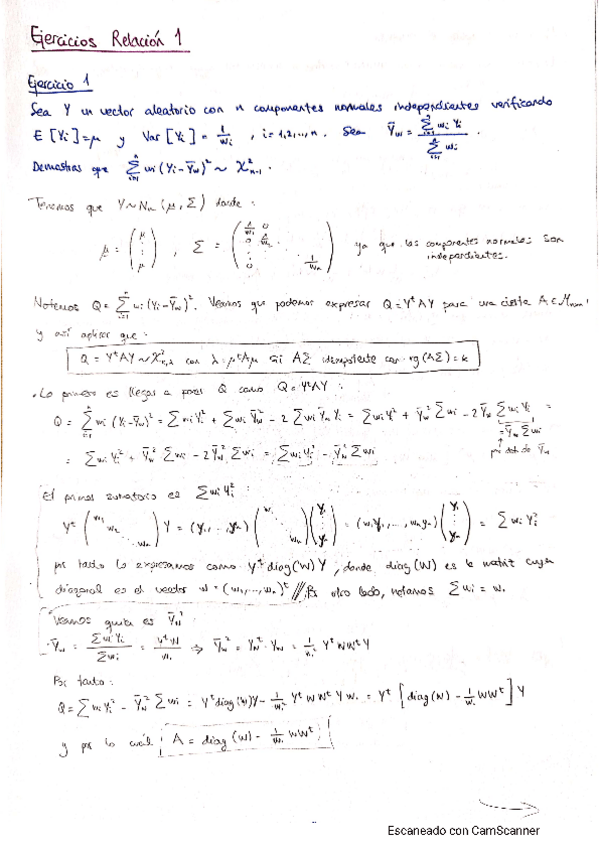 Ejercicios Relación 1
Ejercicio 1
Sea Y un vector aleatorio con n componentes normales independientes verificando
E[Yi]=μ y Var[Yi] = 1/wi , i=1,2,...,n. Sea Ȳw = Σ(i=1..n) wi Yi / Σ(i=1..n) wi .
Demostrar que Σ(i=1..n) wi (Yi-Ȳw)² ~ χ²n-1.
Tenemos que Y~Nn (μ, Σ) donde:
μ = (μ ⋮ μ) , Σ = (1/w1 0 0 1/w2 ⋱ 1/wn) ya que las componentes normales son
independientes.
Notemos Q = Σ(i=1..n) wi (Yi-Ȳw)². Veamos que podemos expresar Q=YᵗAY para una cierta A∈Mnxn
y así aplicar que:
Q = YᵗAY ~ χ²k,λ con λ=μᵗAμ sii AΣ idempotente con rg(AΣ)=k
Lo primero es llegar a poner Q como Q=YᵗAY :
Q = Σ(i=1..n) wi (Yi-Ȳw)² = Σ wi Yi² + Σ wi Ȳw² - 2 Σ wi Ȳw Yi = Σ wi Yi² + Ȳw² Σ wi - 2 Ȳw Σ wi Yi =
= Ȳw Σ wi
por def. de Ȳw
= Σ wi Yi² + Ȳw² Σ wi - 2Ȳw² Σ wi = Σ wi Yi² - Ȳw² Σ wi
El primer sumatorio es Σ wi Yi² :
Yᵗ (w1 w2 ⋱ wn) Y = (y1, ..., yn) (w1 ⋱ wn) (y1 ⋮ yn) = (w1y1, ..., wnyn) (y1 ⋮ yn) = Σ wi Yi²
por tanto lo expresamos como Yᵗ diag(W) Y , donde diag(W) es la matriz cuya
diagonal es el vector W = (w1,...,wn)ᵗ // Por otro lado, notamos Σ wi = w.
Veamos quién es Ȳw²
Ȳw = Σ wi Yi / Σ wi = YᵗW / w. ⇒ Ȳw² = Ȳwᵗ Ȳw = 1/w.² YᵗWWᵗY
Por tanto:
Q = Σ wi Yi² - Ȳw² Σ wi = Yᵗ diag(W)Y - 1/w.² YᵗWWᵗY w. = Yᵗ [diag(W) - 1/w. WWᵗ] Y
y por lo cual A = diag(W) - 1/w. WWᵗ
Escaneado con CamScanner